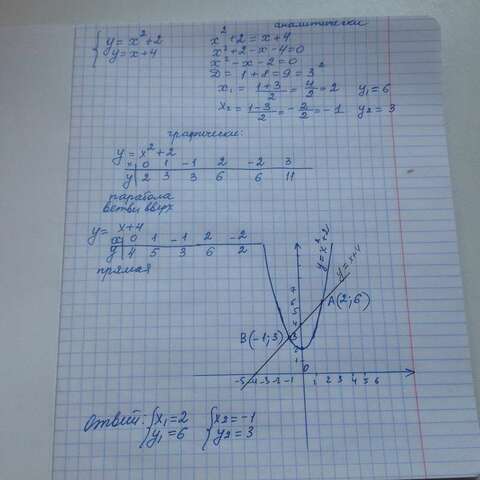 аналитически
{ y = x² + 2
y = x + 4
x² + 2 = x + 4
x² + 2 - x - 4 = 0
x² - x - 2 = 0
D = 1 + 8 = 9 = 3²
x₁ = (1+3)/2 = 4/2 = 2 y₁ = 6
x₂ = (1-3)/2 = -2/2 = -1 y₂ = 3
графически:
y = x² + 2
x | 0 1 -1 2 -2 3
y | 2 3 3 6 6 11
парабола
ветви вверх
y = x + 4
x | 0 1 -1 2 -2
y | 4 5 3 6 2
прямая
y = x² + 2
y = x + 4
A(2; 6)
B(-1; 3)
0
-5 -4 -3 -2 -1 1 2 3 4 5 6
Ответ: { x₁ = 2 { x₂ = -1
y₁ = 6 y₂ = 3